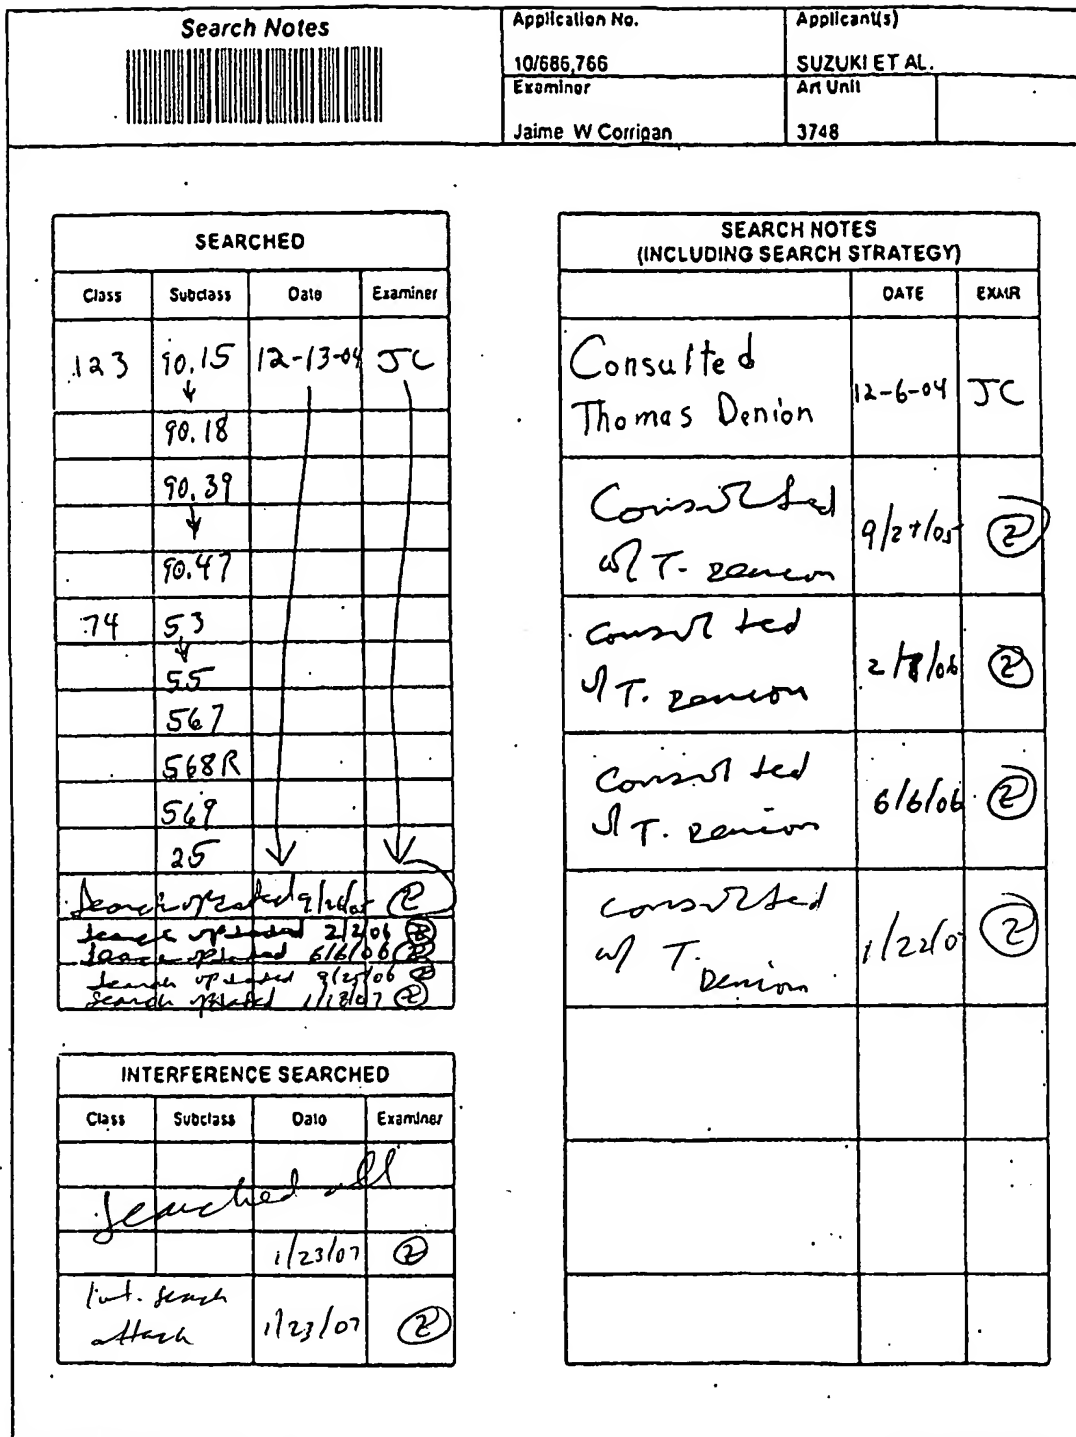 Search Notes
Application No.
10/686,766
Applicant(s)
SUZUKI ET AL.
Examiner
Jaime W Corrigan
Art Unit
3748
SEARCHED
Class Subclass Date Examiner
123 90.15 12-13-04 JC
90.18
90.39
90.47
74 53
55
567
568R
569
25
Search updated 9/26/05 Z
Search updated 2/2/06 Z
Search updated 6/6/06 Z
Search updated 9/25/06 Z
Search updated 1/18/07 Z
INTERFERENCE SEARCHED
Class Subclass Date Examiner
Searched all
1/23/07 Z
Int. Search
attach 1/23/07 Z
SEARCH NOTES
(INCLUDING SEARCH STRATEGY)
DATE EXMR
Consulted
Thomas Denion 12-6-04 JC
Consulted
w/ T. Denion 9/27/05 Z
Consulted
w/ T. Denion 2/7/06 Z
Consulted
w/ T. Denion 6/6/06 Z
Consulted
w/ T.
Denion 1/22/0 Z